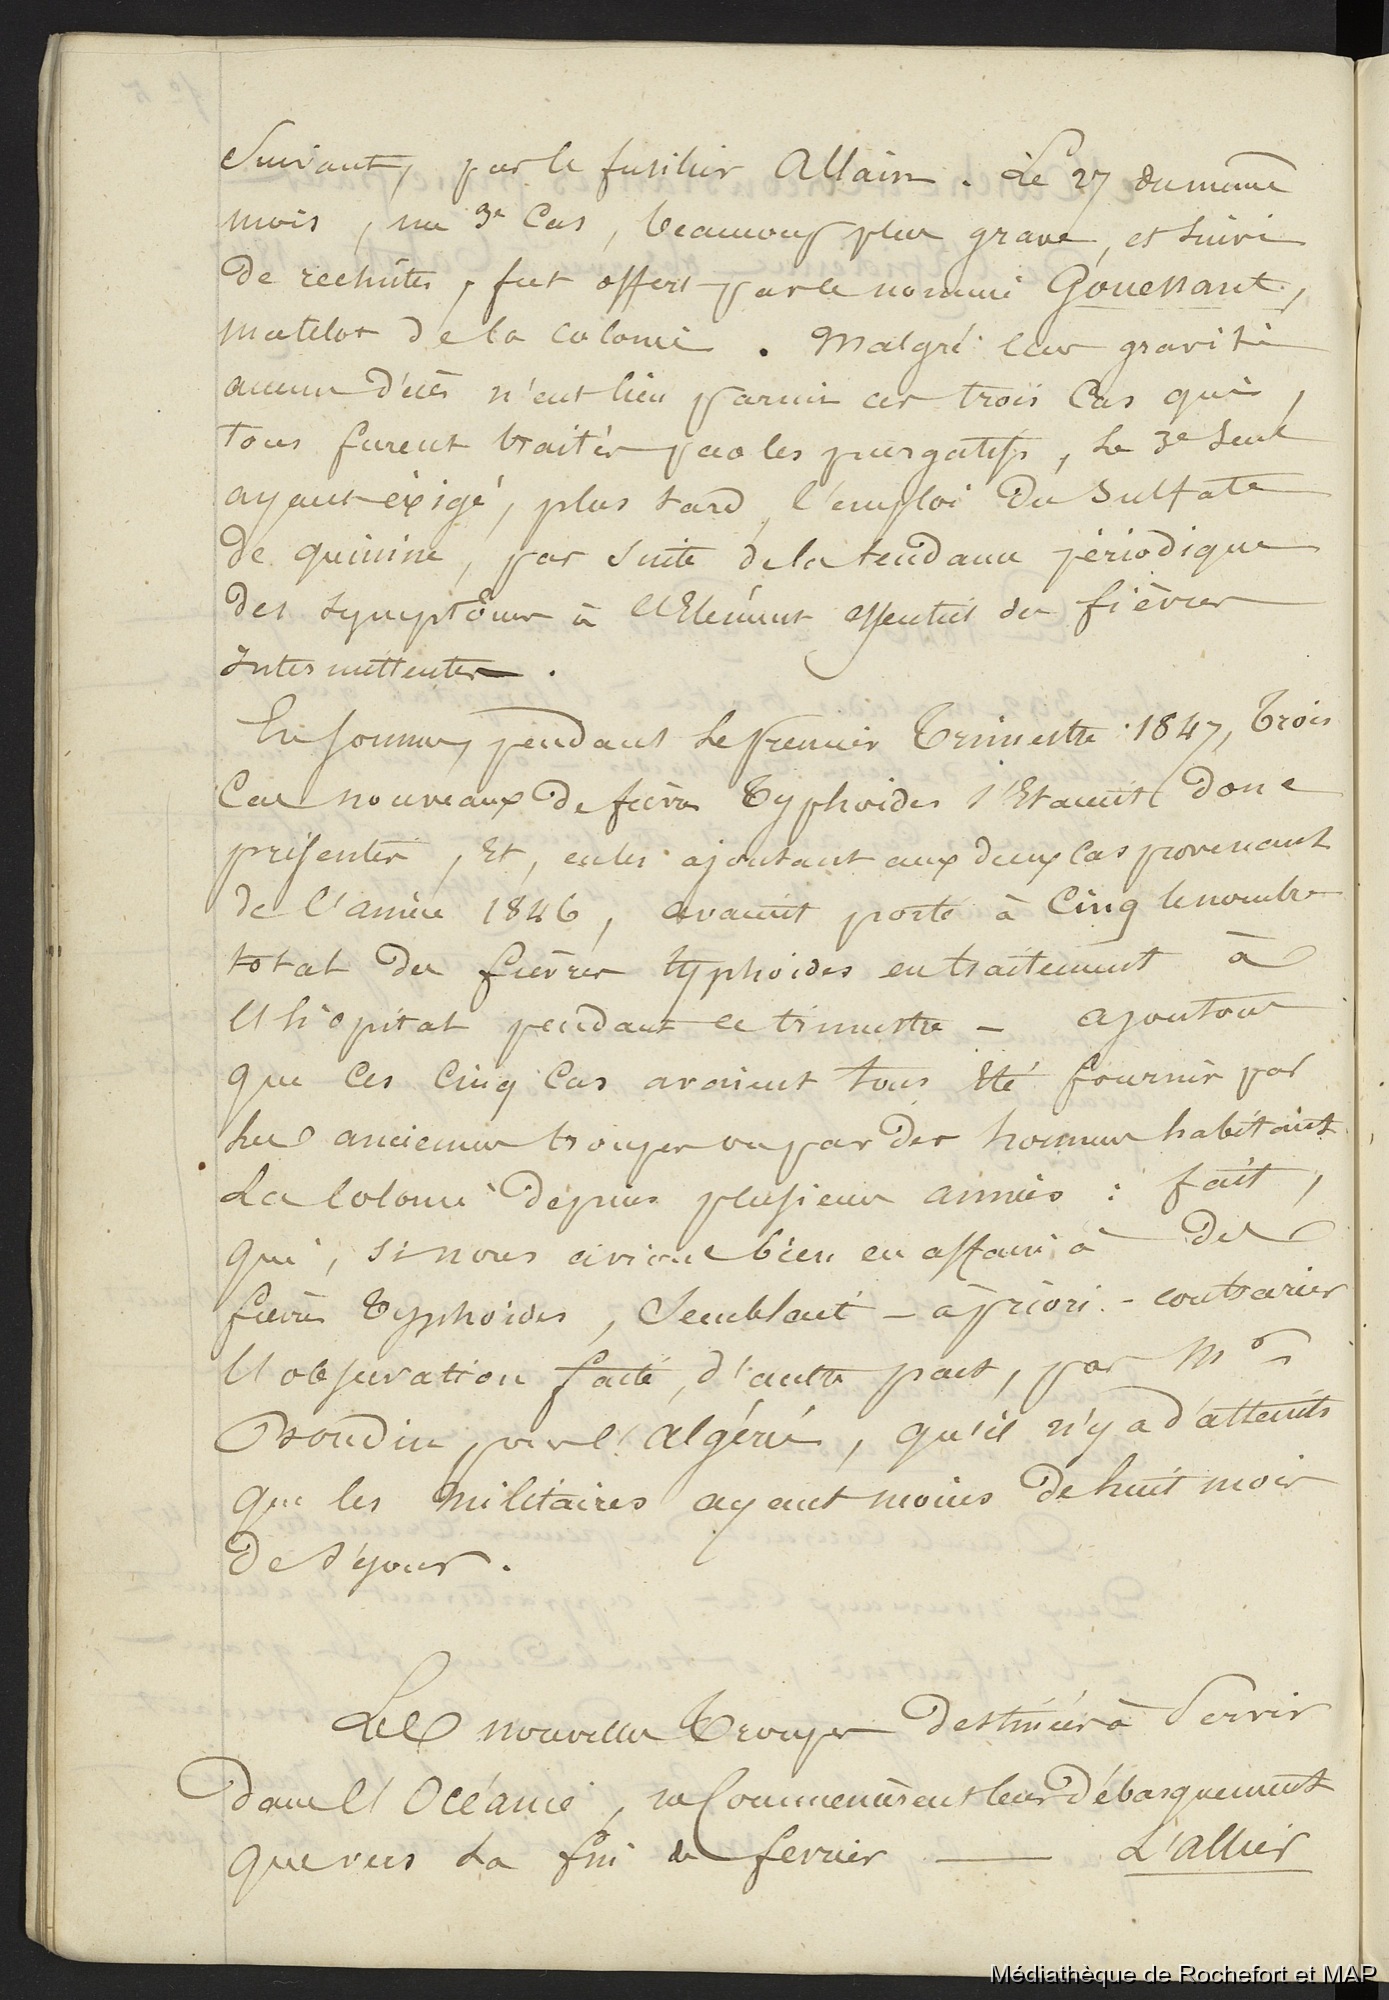 Suivant, par le fusilier Allain. Le 27 du même
mois, un 3e Cas, beaucoup plus grave, et suivi
de rechûtes, fut offert par le nommé Gouessant,
matelot de la colonie. Malgré leur gravité
aucun décès n'eut lieu parmi ces trois Cas qui,
tous furent traités par les purgatifs, le 3e seul
ayant éxigé, plus tard, l'emploi du Sulfate
de quinine, par suite de la tendance périodique
des symptômes à l'Elément essentiel des fièvres
intermittentes.
En somme, pendant le premier Trimestre 1847, Trois
Cas nouveaux de fièvres Typhoïdes s'étaient donc
présentés, Et, en les ajoutant aux deux cas provenant
de l'année 1846, avaient porté à Cinq le nombre
total des fièvres typhoïdes en traitement à
l'hôpital pendant ce trimestre — ajoutons
que ces Cinq Cas avaient tous Eté fournis par
les anciennes troupes ou par des hommes habitant
La Colonie depuis plusieurs années : fait,
qui, si nous avions bien eu affaire à des
fièvres Typhoïdes, Semblait — à priori — contrarier
l'observation faite, d'autre part, par Mr
Boudin, pour l'Algérie, qu'il n'y a d'atteints
que les militaires ayant moins de huit mois
de séjour.
Les nouvelles Troupes destinées à Servir
dans l'Océanie, ne Commencèrent leur Débarquement
que vers la fin de fevrier — L'allier
Médiathèque de Rochefort et MAP